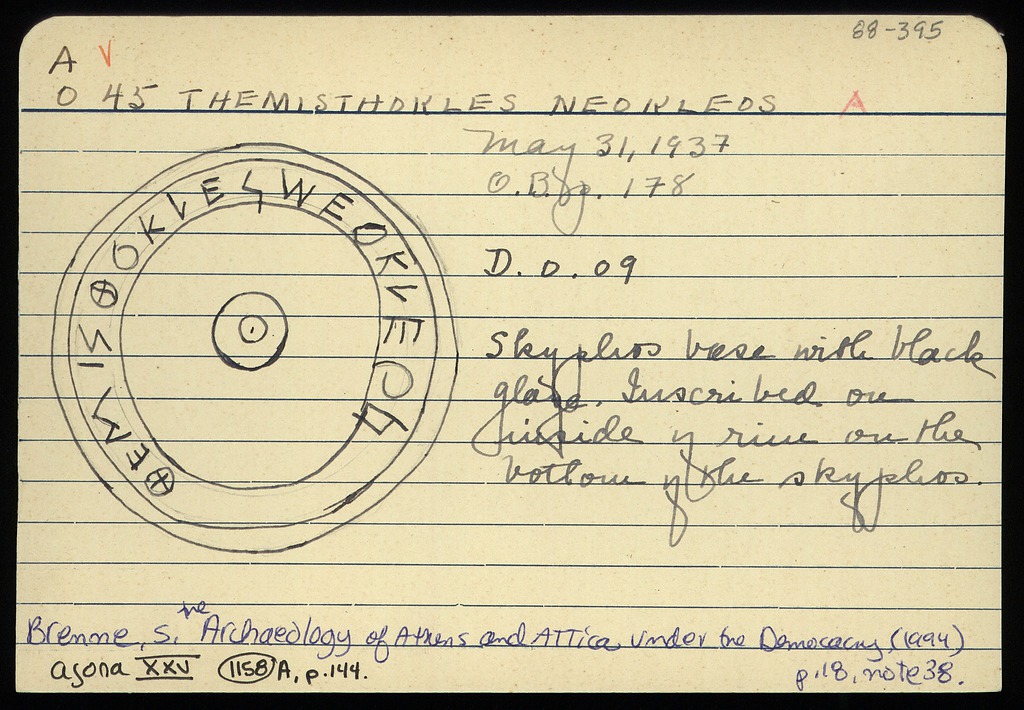 88-395
A V
O 45 THEMISTHOKLES NEOKLEOS A
May 31, 1937
O.B. p. 178
D. 0.09
ⴲEMIS⊕OKLES NEOKLEOS
Skyphos base with black
glaze. Inscribed on
inside of rim on the
bottom of the skyphos.
Brenne, S. The Archaeology of Athens and Attica under the Democracy, (1994)
p.18, note 38.
agora XXV 1158 A, p.144.